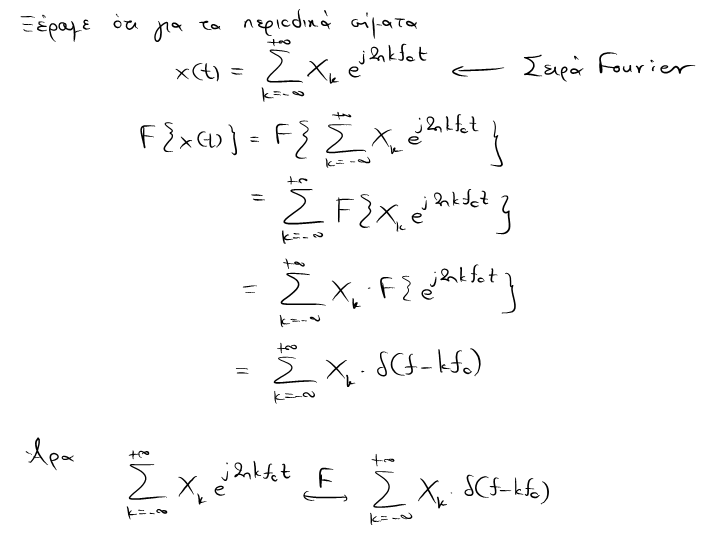 Ξέραμε ότι για τα περιοδικά σήματα
x(t) = \sum_{k=-∞}^{+∞} X_k e^{j2πkf_0t} ⟵ Σειρά Fourier
F{x(t)} = F{ \sum_{k=-∞}^{+∞} X_k e^{j2πkf_0t} }
= \sum_{k=-∞}^{+∞} F{X_k e^{j2πkf_0t}}
= \sum_{k=-∞}^{+∞} X_k · F{e^{j2πkf_0t}}
= \sum_{k=-∞}^{+∞} X_k · δ(f-kf_0)
Άρα \sum_{k=-∞}^{+∞} X_k e^{j2πkf_0t} \overset{F}{⟷} \sum_{k=-∞}^{+∞} X_k · δ(f-kf_0)